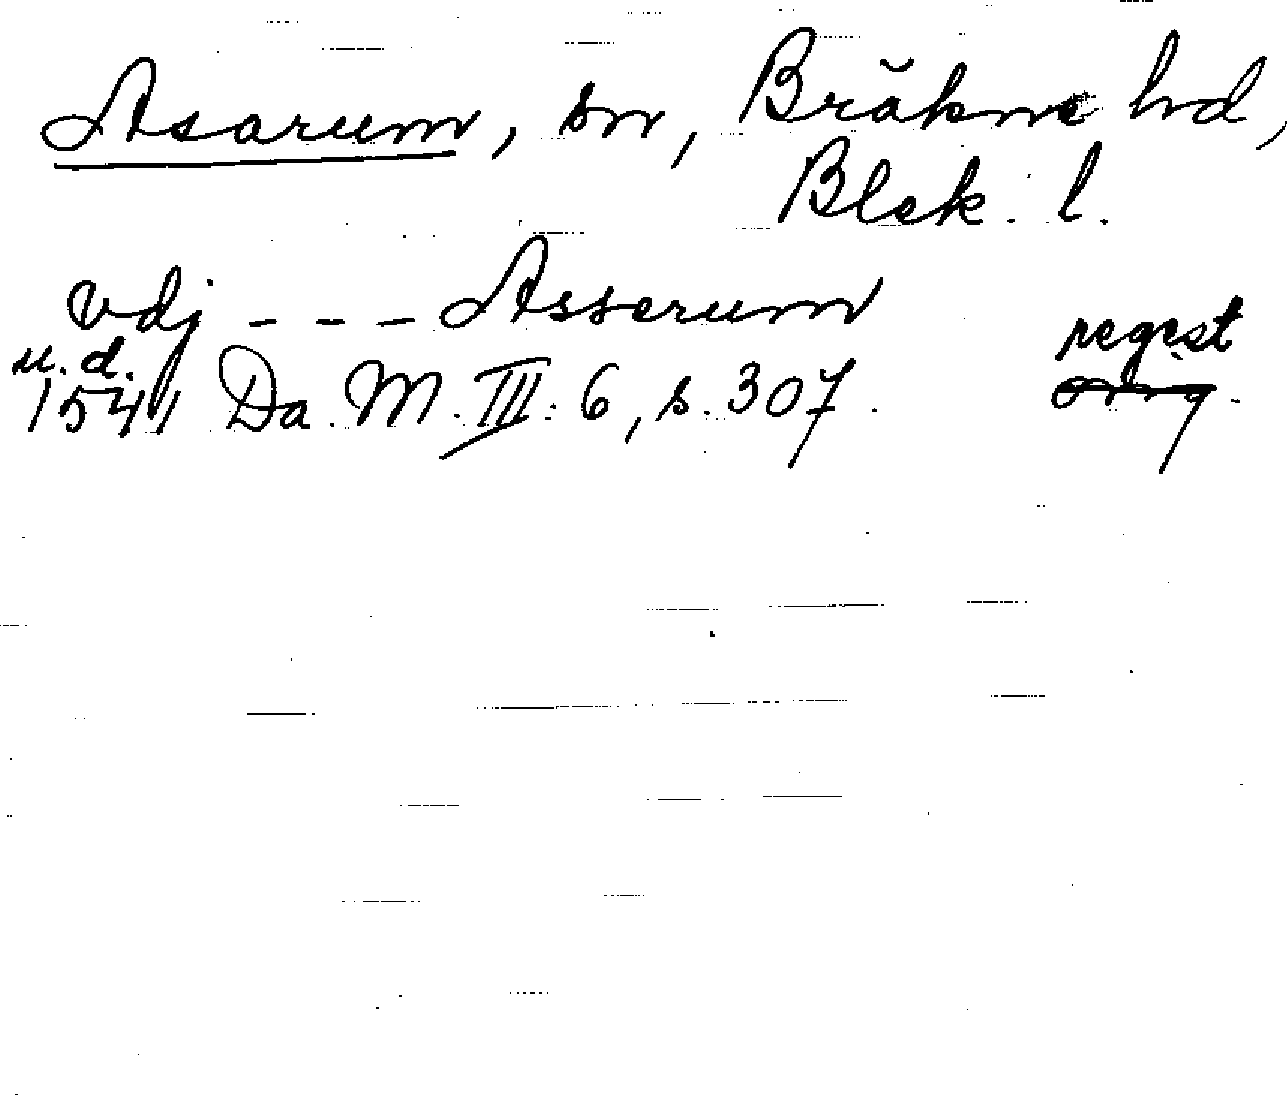 Asarum, sn, Bräkne hd,
Blek. l.
vdj - - - Asserum
u. d. regest
1541 Da. M. III. 6, s. 307. orig.